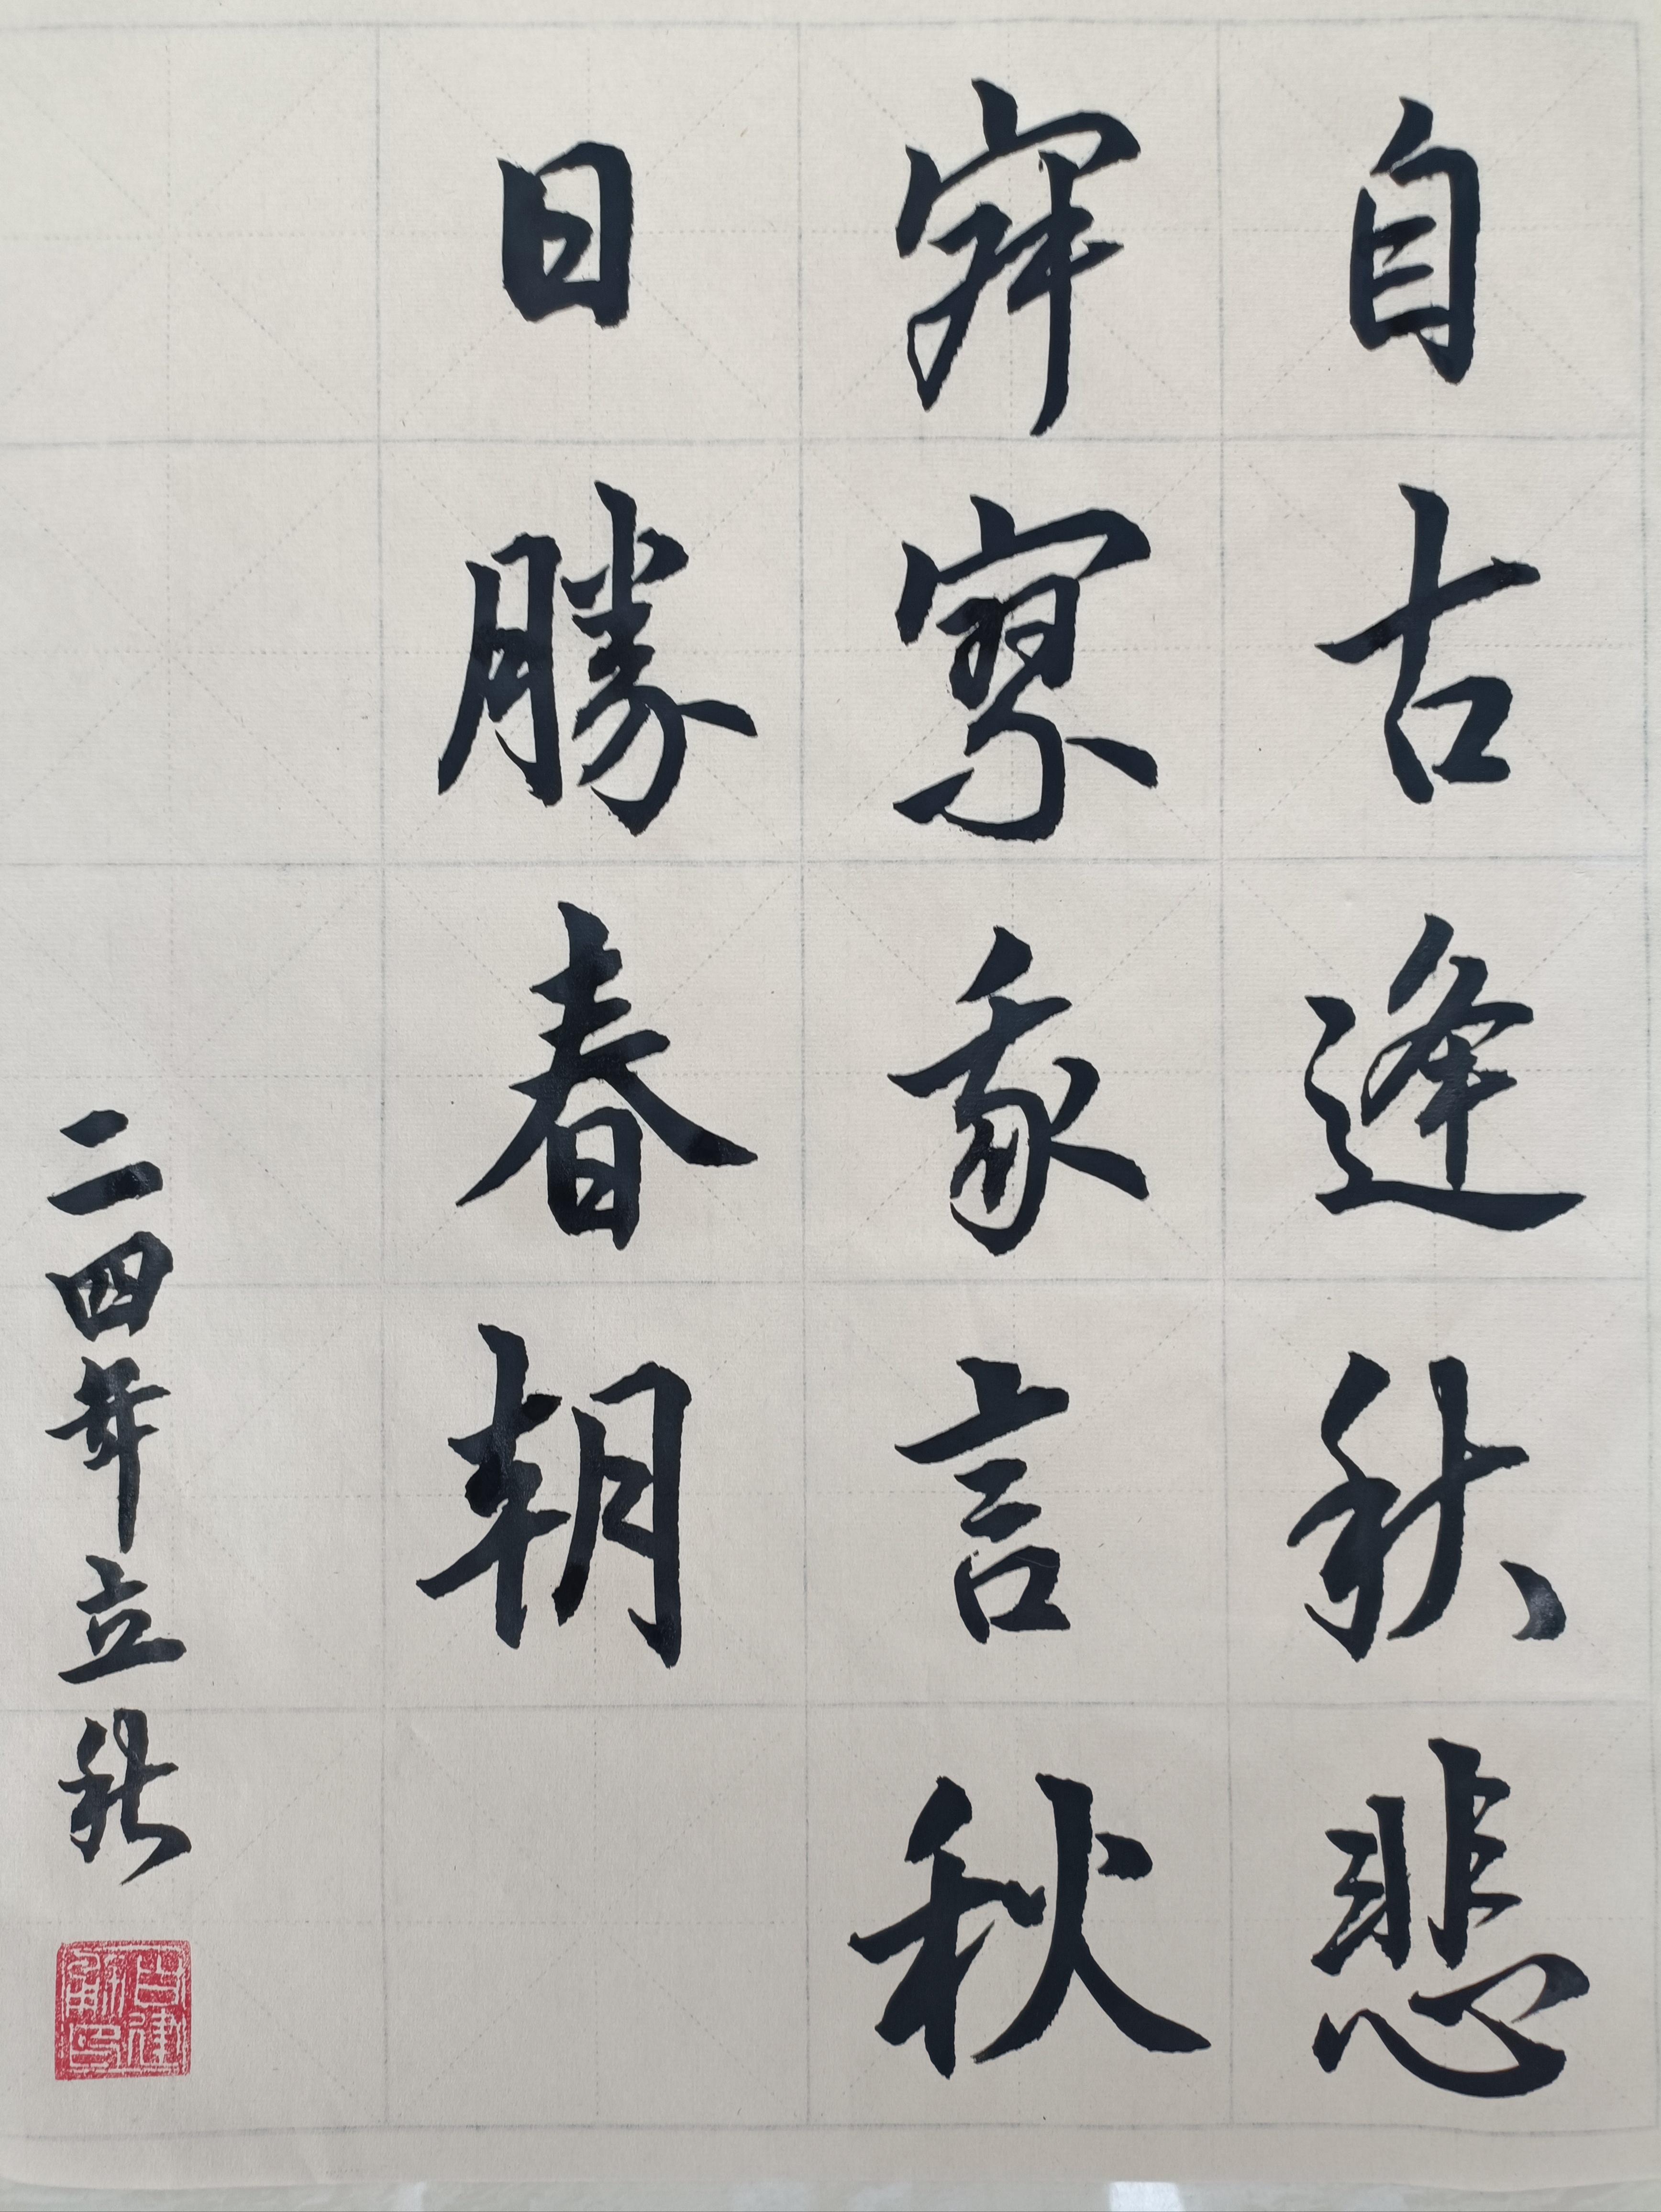 自古逢秋悲
寂寥我言秋
日勝春朝
二四年立秋